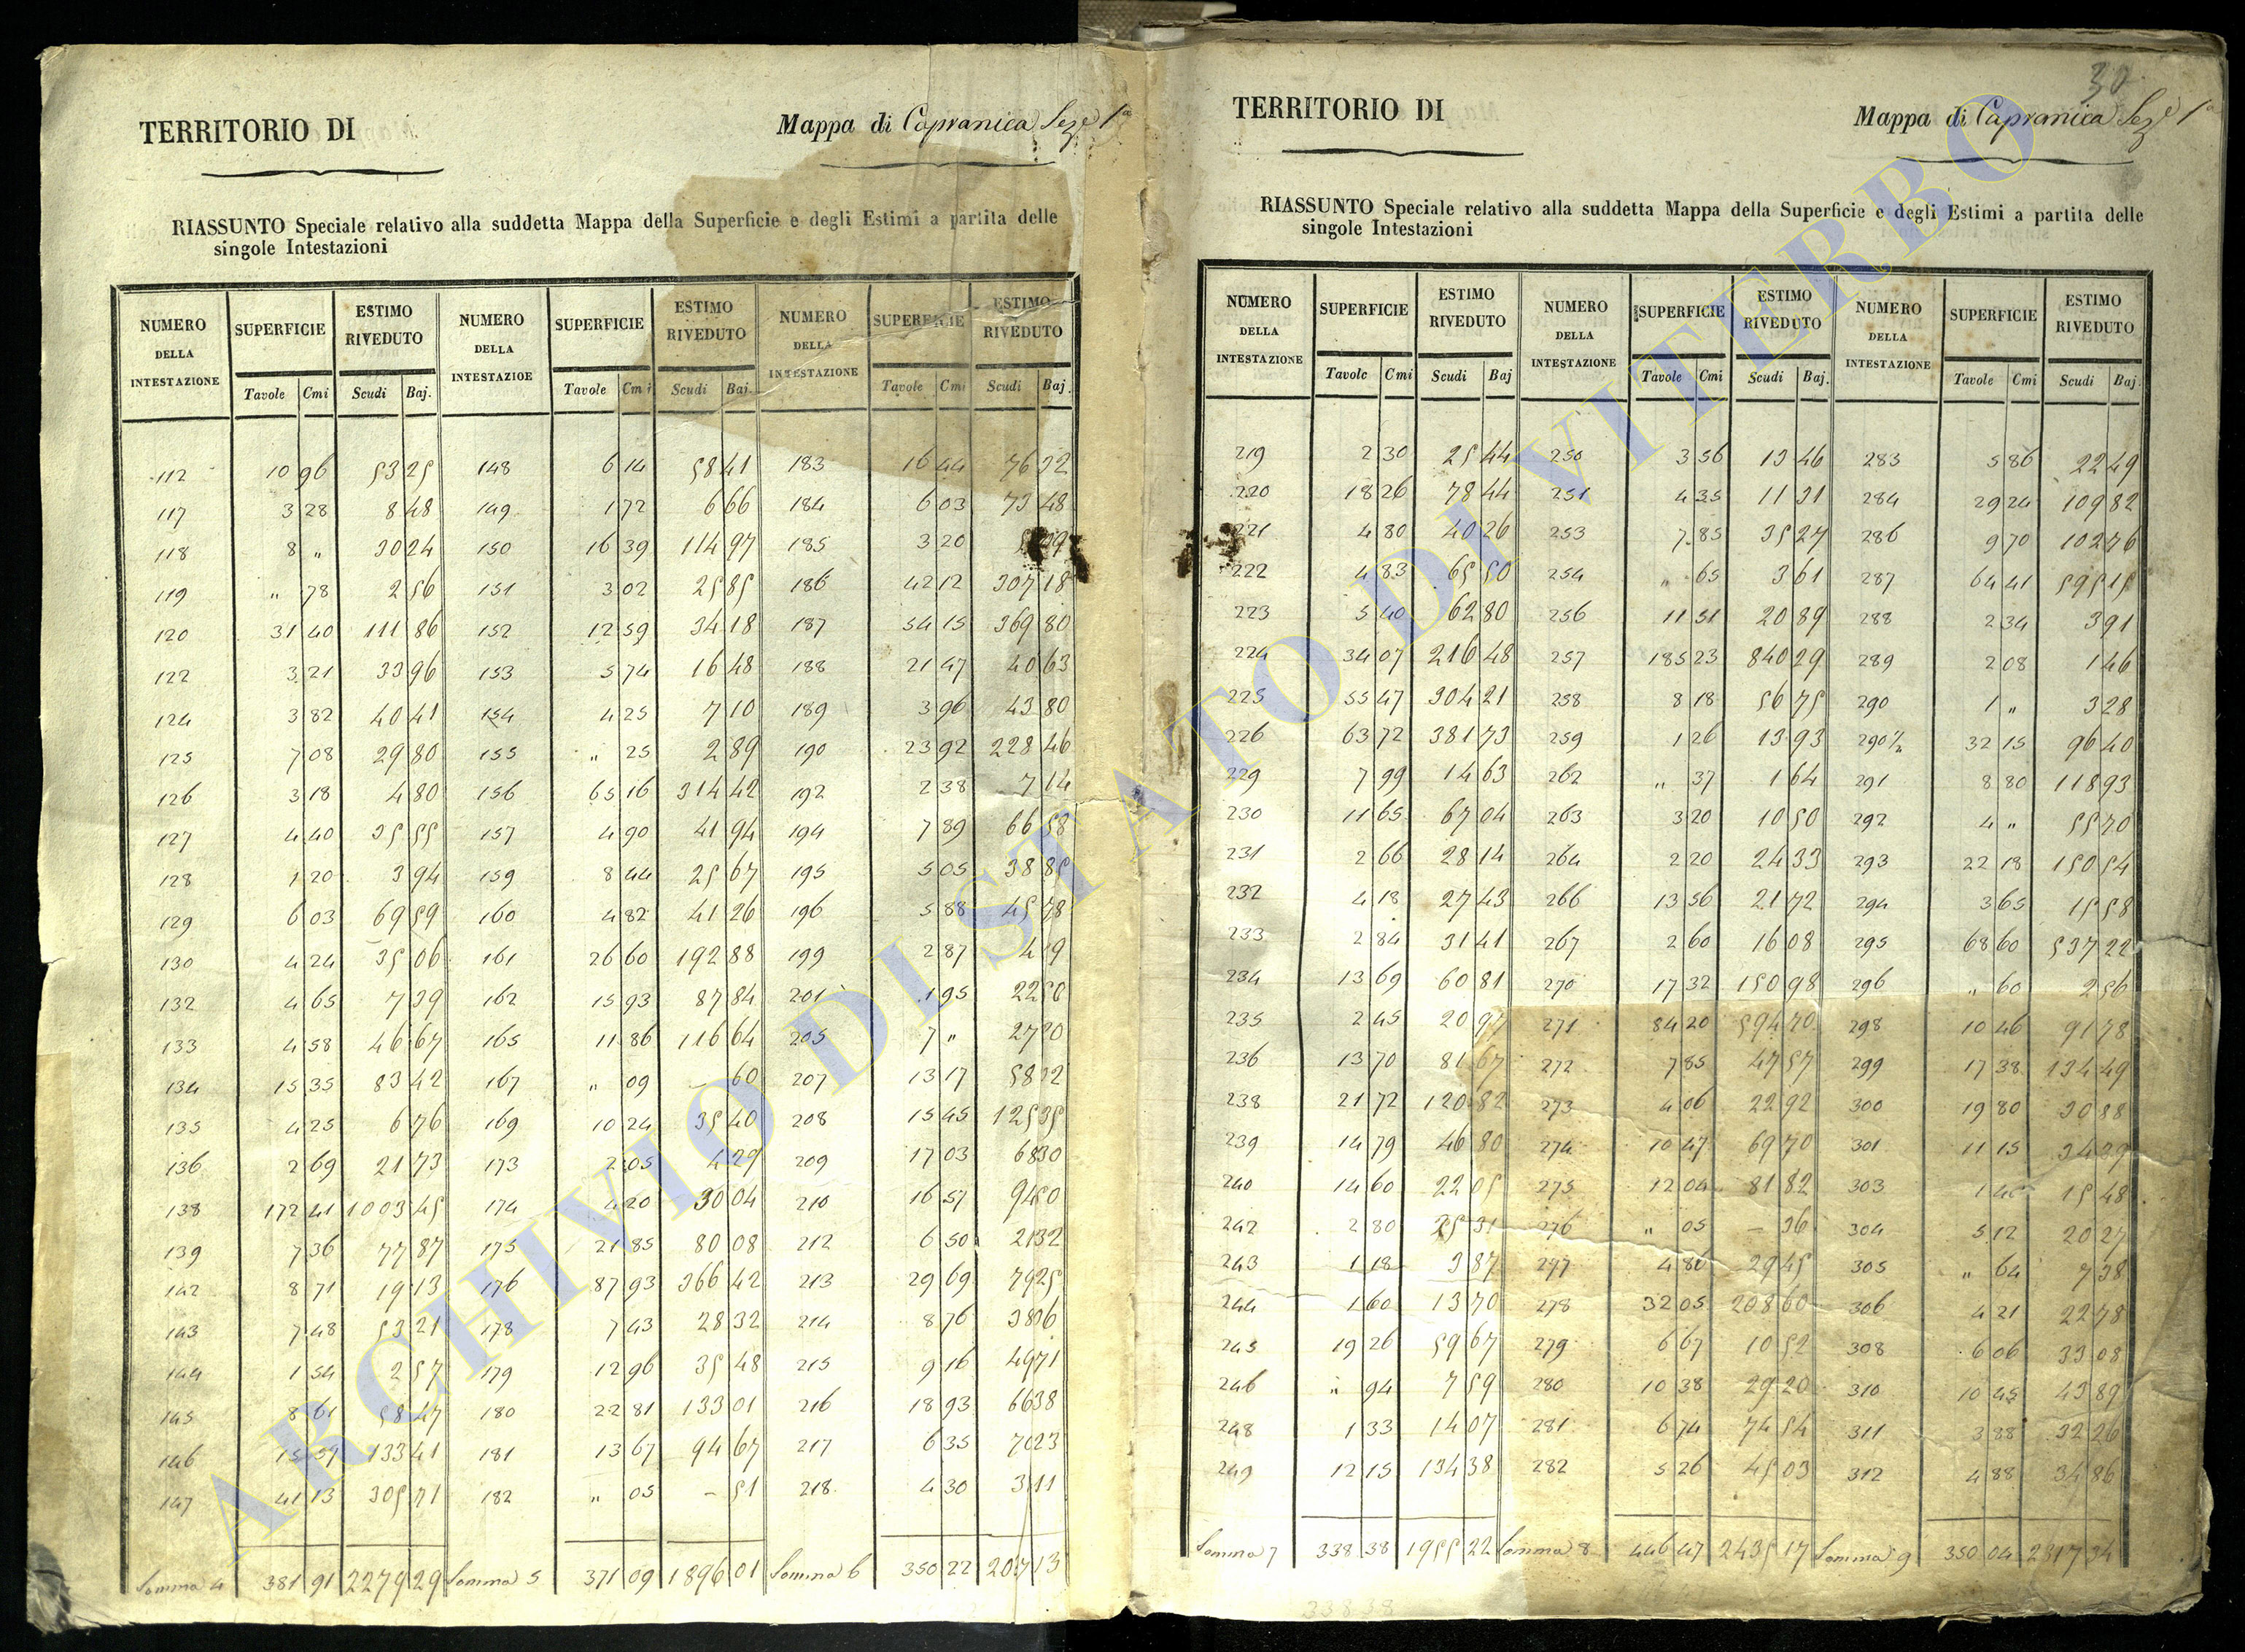 TERRITORIO DI
Mappa di Capranica Seze 1a
RIASSUNTO Speciale relativo alla suddetta Mappa della Superficie e degli Estimi a partita delle
singole Intestazioni
NUMERO DELLA INTESTAZIONE SUPERFICIE ESTIMO RIVEDUTO NUMERO DELLA INTESTAZIOE SUPERFICIE ESTIMO RIVEDUTO NUMERO DELLA INTESTAZIONE SUPERFICIE ESTIMO RIVEDUTO
Tavole Cmi Scudi Baj. Tavole Cmi Scudi Baj. Tavole Cmi Scudi Baj.
112 10 96 53 25 148 6 14 58 41 183 16 44 76 32
117 3 28 8 48 149 1 72 6 66 184 6 03 73 48
118 8 „ 30 24 150 16 39 114 97 185 3 20
119 „ 78 2 56 151 3 02 25 85 186 42 12 307 18
120 31 40 111 86 152 12 59 34 18 187 54 15 369 80
122 3 21 33 96 153 5 74 16 48 188 21 47 40 63
124 3 82 40 41 154 4 25 7 10 189 3 96 43 80
125 7 08 29 80 155 „ 25 2 89 190 23 92 228 46
126 3 18 4 80 156 65 16 314 42 192 2 38 7 14
127 4 40 35 55 157 4 90 41 94 194 7 89 66 58
128 1 20 3 94 159 8 44 25 67 195 5 05 38 85
129 6 03 69 59 160 4 82 41 26 196 5 88 45 78
130 4 24 35 06 161 26 60 192 88 199 2 87 4 19
132 4 65 7 39 162 15 93 87 84 201 1 95 22 50
133 4 58 46 67 165 11 86 116 64 205 7 „ 27 30
134 15 35 83 42 167 „ 09 – 60 207 13 17 58 32
135 4 25 6 76 169 10 24 35 40 208 15 45 125 35
136 2 69 21 73 173 2 05 4 29 209 17 03 68 30
138 172 41 1003 45 174 4 20 30 04 210 16 57 94 50
139 7 36 77 87 175 21 85 80 08 212 6 50 21 32
142 8 71 19 13 176 87 93 366 42 213 29 69 79 25
143 7 48 53 21 178 7 43 28 32 214 8 76 38 16
144 1 54 2 57 179 12 96 35 48 215 9 16 49 71
145 8 61 58 47 180 22 81 133 01 216 18 93 66 38
146 15 59 133 41 181 13 67 94 67 217 6 35 70 23
147 41 13 305 71 182 „ 05 – 51 218 4 30 3 11
Somma 4 381 91 2279 29 Somma 5 371 09 1896 01 Somma 6 350 22 13
30
TERRITORIO DI
Mappa di Capranica Seze 1a
RIASSUNTO Speciale relativo alla suddetta Mappa della Superficie e degli Estimi a partita delle
singole Intestazioni
NUMERO DELLA INTESTAZIONE SUPERFICIE ESTIMO RIVEDUTO NUMERO DELLA INTESTAZIONE SUPERFICIE ESTIMO RIVEDUTO NUMERO DELLA INTESTAZIONE SUPERFICIE ESTIMO RIVEDUTO
Tavole Cmi Scudi Baj Tavole Cmi Scudi Baj. Tavole Cmi Scudi Baj.
219 2 30 25 44 250 3 56 13 46 283 5 86 22 49
220 18 26 78 44 251 4 35 11 31 284 29 24 109 82
221 4 80 40 26 253 7 85 35 27 286 9 70 102 76
222 4 83 65 50 254 „ 65 3 61 287 64 41 595 15
223 5 40 62 80 256 11 51 20 89 288 2 34 3 91
224 34 07 216 48 257 185 23 840 29 289 2 08 1 46
225 55 47 304 21 258 8 18 56 75 290 1 „ 3 28
226 63 72 381 73 259 1 26 13 93 290½ 32 15 96 40
229 7 99 14 63 262 „ 37 1 64 291 8 80 118 93
230 11 65 67 04 263 3 20 10 50 292 4 „ 55 70
231 2 66 28 14 264 2 20 24 33 293 22 18 150 54
232 4 18 27 43 266 13 56 21 72 294 3 65 15 58
233 2 84 31 41 267 2 60 16 08 295 68 60 537 22
234 13 69 60 81 270 17 32 150 98 296 „ 60 2 56
235 2 45 20 97 271 84 20 594 70 298 10 46 91 78
236 13 70 81 67 272 7 85 47 57 299 17 38 134 49
238 21 72 120 82 273 4 06 22 92 300 19 80 30 88
239 14 79 46 80 274 10 47 69 70 301 11 15 34 29
240 14 60 22 05 275 12 04 81 82 303 1 15 48
242 2 80 25 31 276 „ 05 – 36 304 5 12 20 27
243 1 18 3 87 277 4 86 29 45 305 „ 64 7 38
244 1 60 13 70 278 32 05 208 60 306 4 21 22 78
245 19 26 59 67 279 6 67 10 52 308 6 06 33 08
246 „ 94 7 59 280 10 38 29 20 310 10 45 43 89
248 1 33 14 07 281 6 74 74 54 311 3 88 32 26
249 12 15 134 38 282 5 26 45 03 312 4 88 34 86
Somma 7 338 38 1955 22 Somma 8 446 47 2435 17 Somma 9 350 04 2317 34
338 38
ARCHIVIO DI STATO DI VITERBO